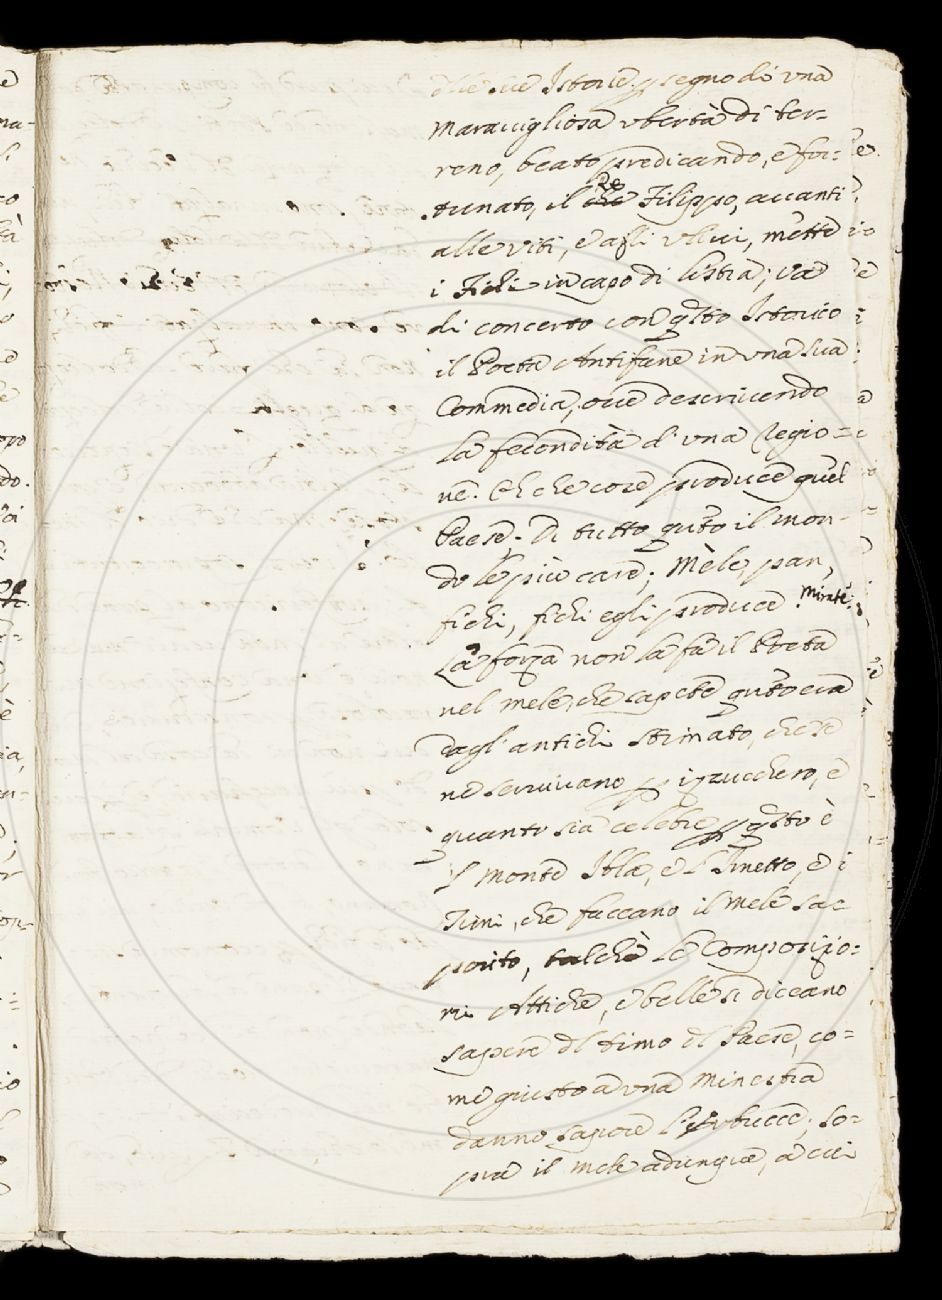 delle sue Istorie p segno di vna
maravigliosa vbertà di ter-
reno, beato predicando, e for:
tunato, il Re Filippo, avanti
alle viti, e agli vlivi, mette
i Fichi in capo di lista; va
di concerto con qsto Istorico
il Poeta Antifane in vna sua
Commedia, ove descrivendo
la fecondità d'vna Regio=
ne. Oh che cose produce quel
Paese. Di tutto qnto il mon-
do le più care; Mele, pan,
fichi, fichi egli produce. Mirate;
La forza non la fa il Poeta
nel mele, che sapete qnto era
dagl'antichi stimato, che se
ne servivano p izucchero, e
quanto sia celebre p qsto è
'l monte Ibla, e l'Imetto, e i
Timi, che faccano il mele sa-
porito, talchè le Composizio:
ni Attiche, e belle si diceano
sapere dl timo dl Paese, co=
me giusto a vna Minestra
danno sapore l'Erbucce; So-
pra il mele adunque, a cui